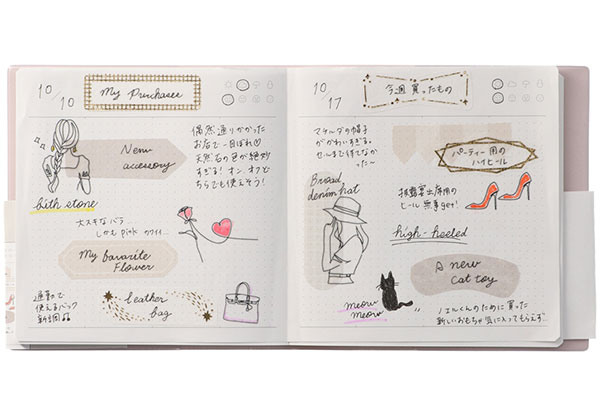 10/10
My Purchases
New
accessory
偶然通りかかった
お店で一目ぼれ♡
天然石の色が絶妙
すぎる！オン オフど
ちらでも使えそう！
birth stone
大スキなバラ
しかも pink カワイイ…
My favorite
Flower
通勤で
使えるバッグ
新調♫
leather
bag
10/17
今週 買ったもの
マチルダの帽子
がかわいすぎる。
セールまで待てなか
った〜
パーティー用の
ハイヒール
Broad
denim hat
披露宴出席用の
ヒール無事get!
high-heeled
A new
cat toy
meow
meow
ノエルくんのために買った
新しいおもちゃ 気に入ってもらえず